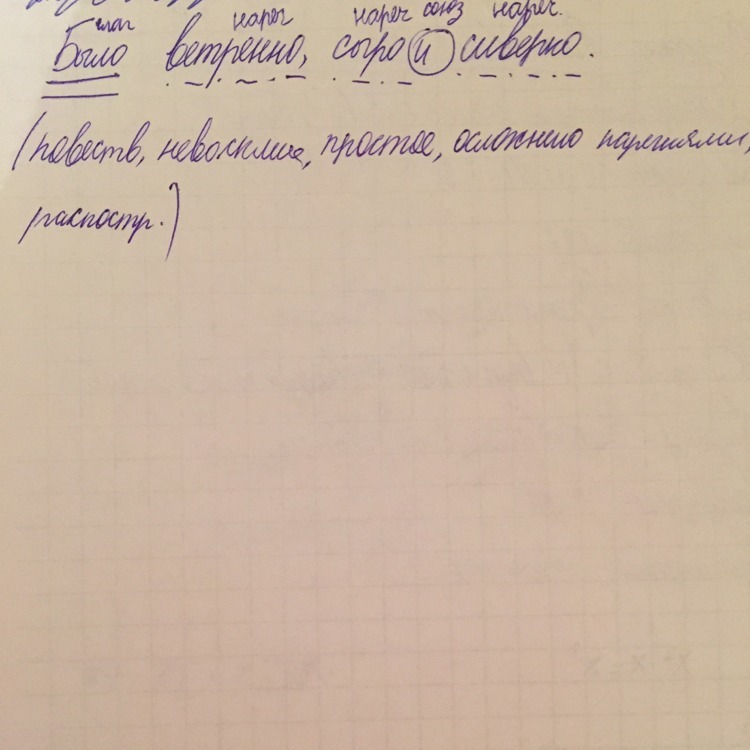 глаг нареч нареч союз нареч.
Было ветренно, сыро и сиверко.
(повеств, невосклиц, простое, осложнено наречиями,
распостр.)